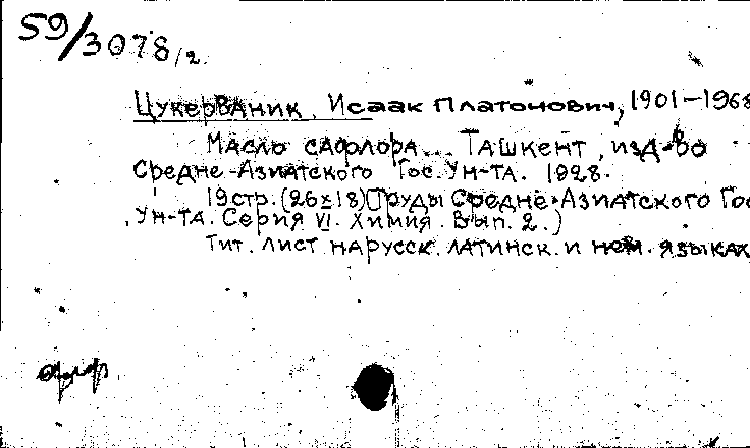 59/3078/2
Цукерваник, Исаак Платонович, 1901-1968
Масло сафлора... Ташкент, изд-во
Средне-Азиатского Гос. Ун-та. 1928.
19 стр. (26х18) (Труды Средне-Азиатского Гос
Ун-та. Серия VI. Химия. Вып. 2.)
Тит. лист на русск. латинск. и нем. языках